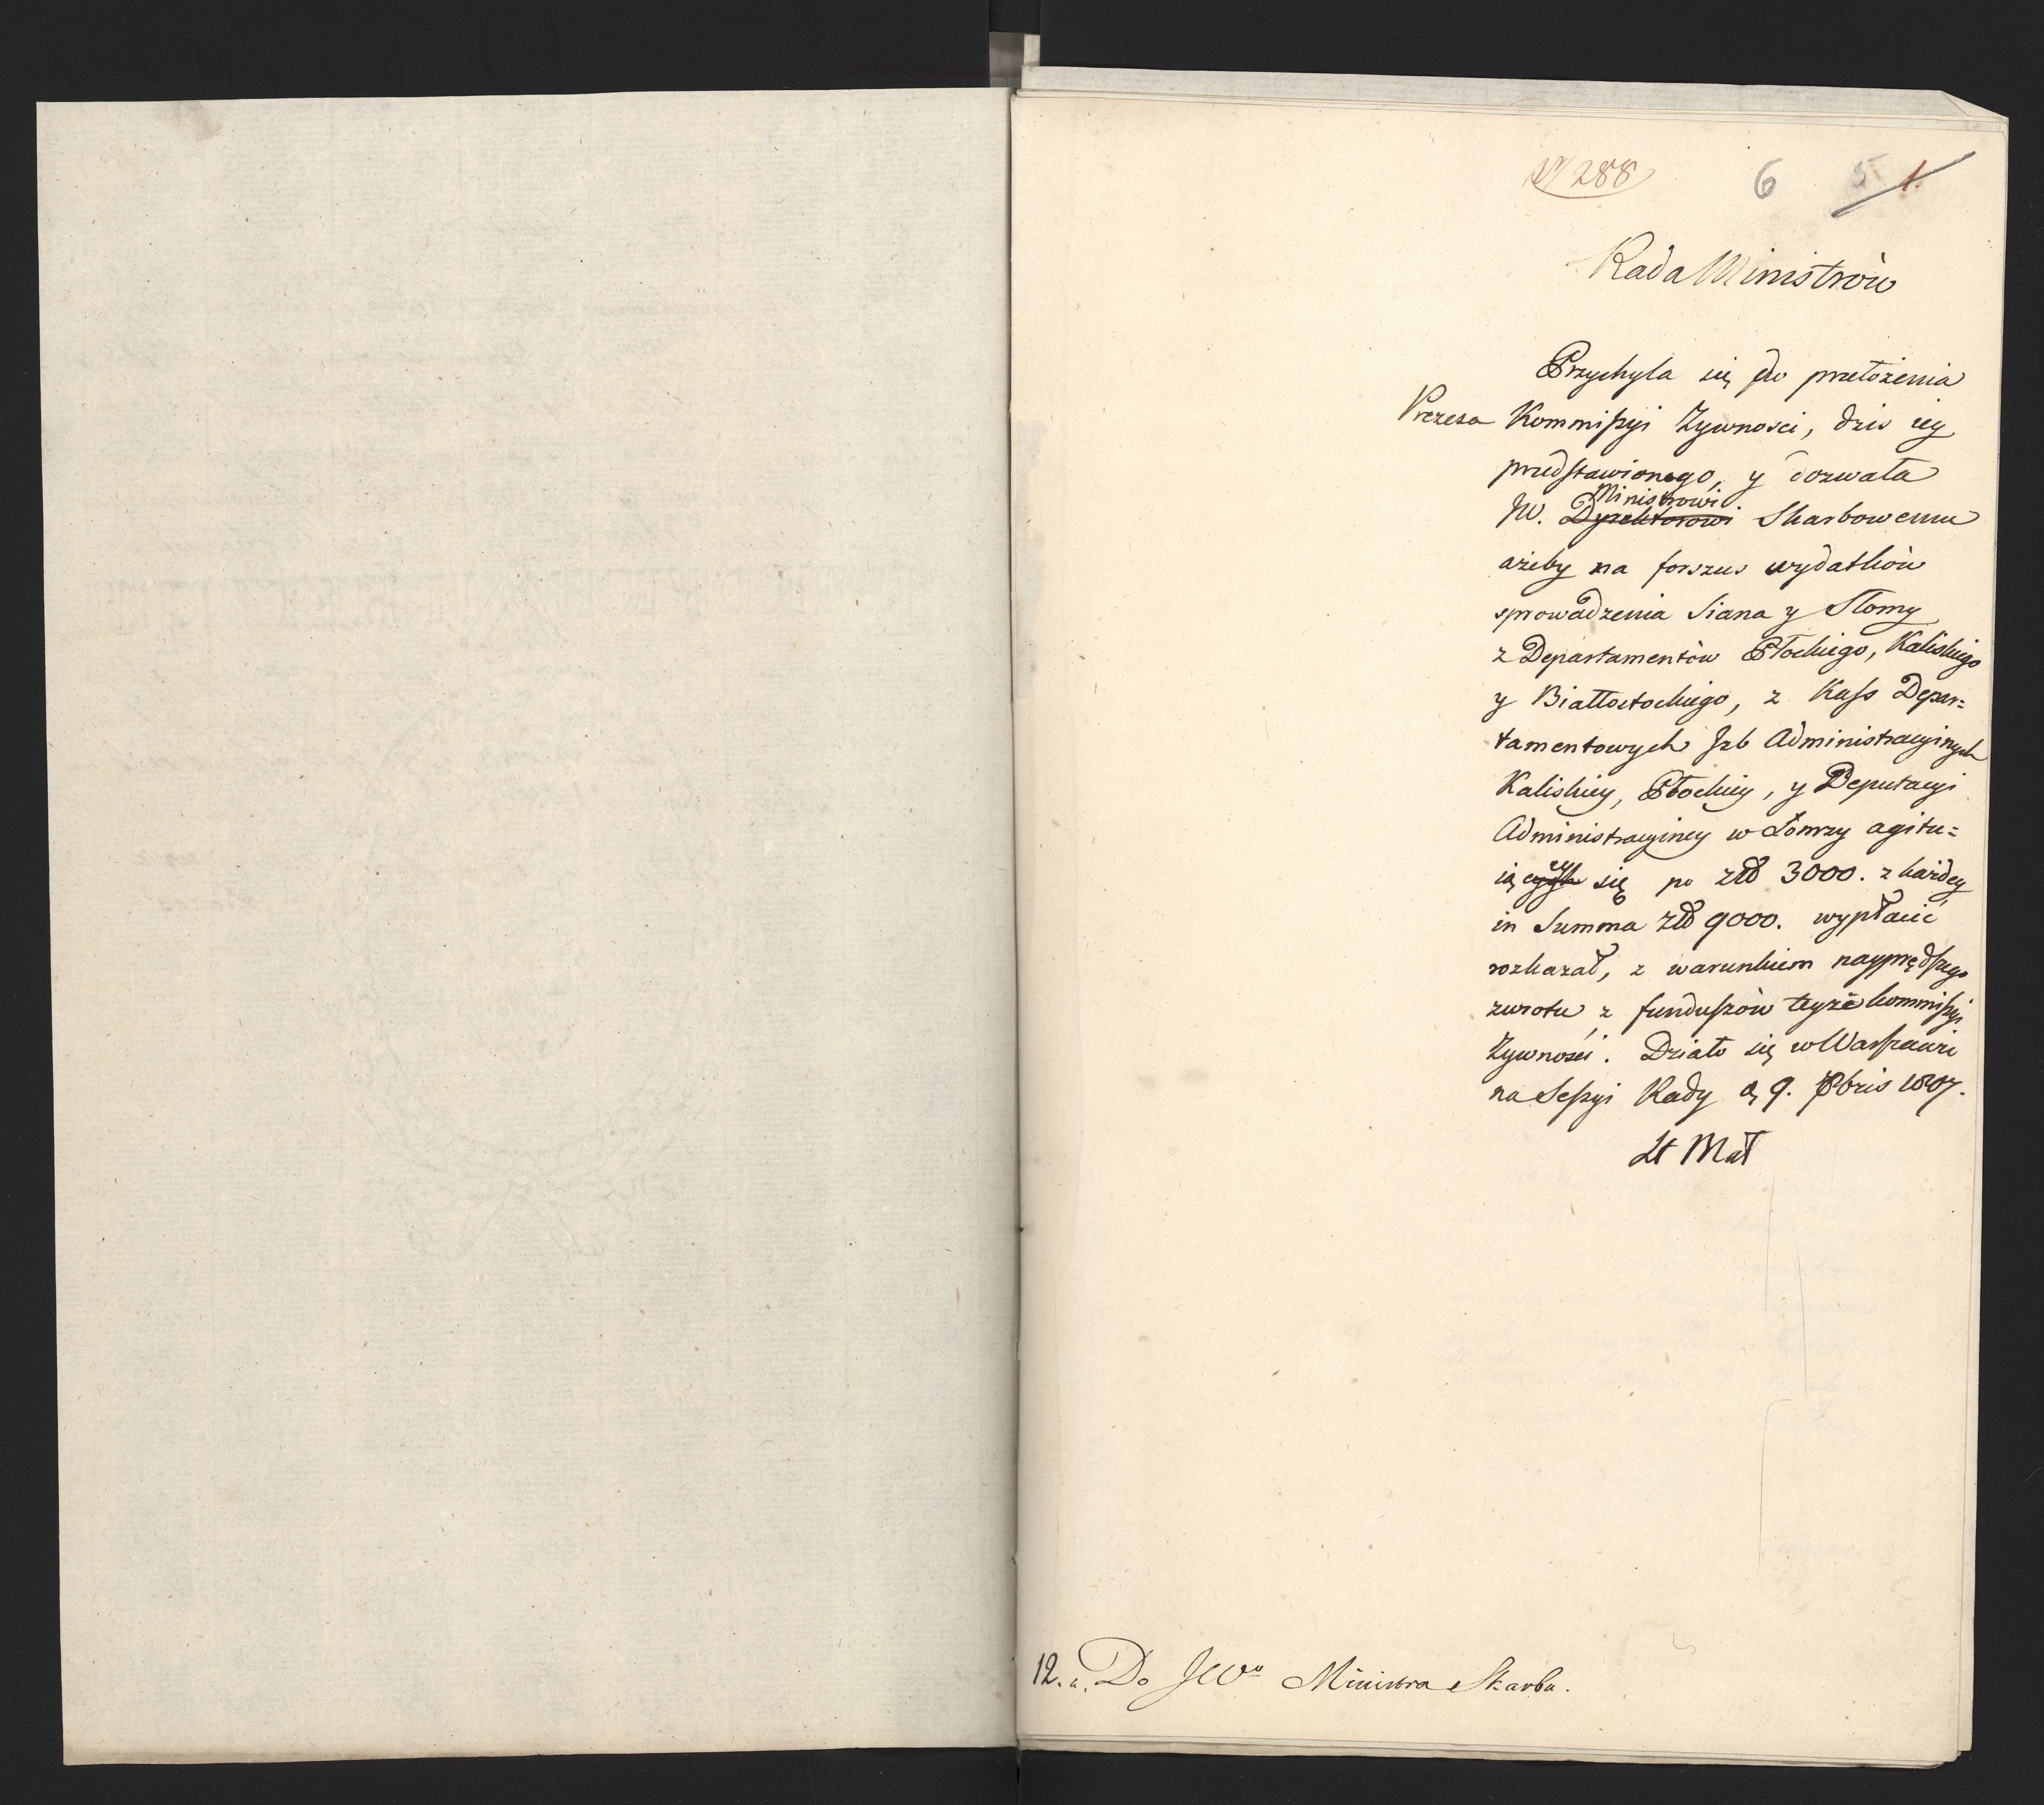 N 288 6 5 1.
Rada Ministrów
Przychyla się do przełożenia
Prezesa Kommissyi Zywnosci, dzis iey
przedstawionego, y dozwala
JW. Dyrektorowi Ministrowi Skarbowemu
ażeby na forszus wydatków
sprowadzenia Siana y Słomy
z Departamentów Płockiego, Kaliskiego
y Białłostockiego, z Kass Depar=
tamentowych Izb Administracyinych
Kaliskiey, Płockiey, y Deputacyi
Administracyiney w Łomzy agitu=
iącey się po złł 3000. z każdey
in Summa złł 9000. wypłacić
rozkazał, z warunkiem nayprędszego
zwrotu z funduszów teyże kommissyi
Żywności. Działo się w Warszawie
na Sessyi Rady d. 9. Xbris 1807.
St Mał
12. a. Do JWo Ministra Skarbu.